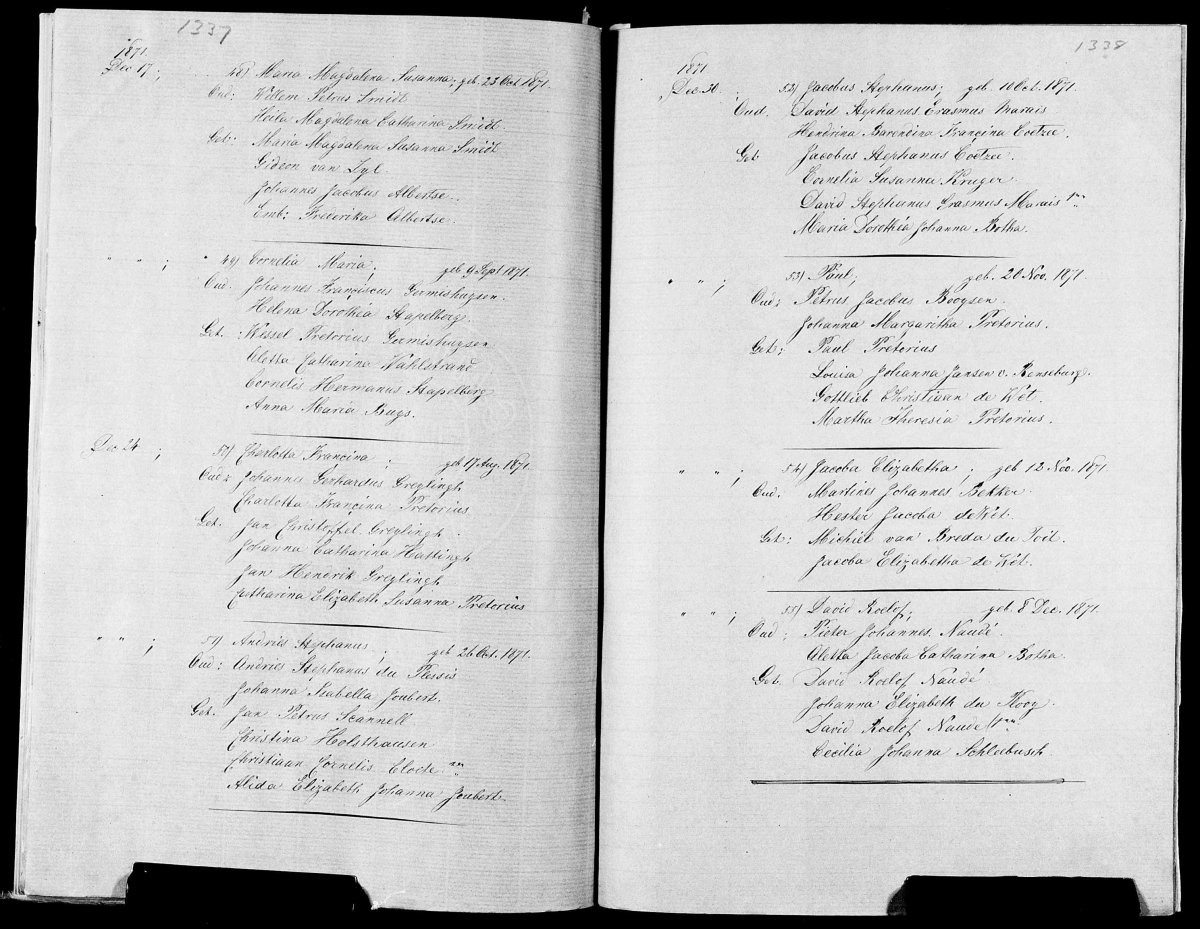 1337
1871.
Dec 17, 48) Maria Magdalena Susanna, geb. 23 Oct 1871.
Oud: Willem Petrus Smidt
Heila Magdalena Catharina Smidt.
Get: Maria Magdalena Susanna Smidt
Gideon van Zyl.
Johannes Jacobus Albertse.
Emb: Frederika Albertse.
" " ; " 49) Cornelia Maria; geb 9 Sept 1871.
Oud. Johannes Franciscus Germishuysen.
Helena Dorothéa Stapelberg.
Get. Wessel Pretorius Germishuysen
Aletta Catharina Wahlstrand
Cornelis Hermanus Stapelberg
Anna Maria Buys.
Dec 24 ; 50) Charlotta Francina ; geb 17 Aug. 1871.
Oud: Johannes Gerhardus Greylingh
Charlotta Francina Pretorius
Get. Jan Christoffel Greylingh.
Johanna Catharina Hattingh
Jan Hendrik Greylingh
Catharina Elizabeth Susanna Pretorius
" " ; 51) Andries Stephanus ; geb 26 Oct. 1871.
Oud: Andries Stephanus du Plessis
Johanna Isabella Joubert.
Get. Jan Petrus Scannell
Christina Holsthausen
Christiaan Cornelis Cloete
Alida Elizabeth Johanna Joubert.
1338
1871
Dec. 30 ; 52) Jacobus Stephanus; geb. 10 Oct. 1871.
Oud. David Stephanus Erasmus Marais
Hendrina Barendina Francina Coetzee.
Get: Jacobus Stephanus Coetzee.
Cornelia Susanna Kruger
David Stephanus Erasmus Marais
Maria Dorothéa Johanna Botha.
" " ; 53) Paul; geb. 20 Nov. 1871
Oud: Petrus Jacobus Booysen.
Johanna Margaritha Pretorius.
Get: Paul Pretorius
Louisa Johanna Jansen v. Rensburg.
Gottlieb Christiaan de Wet.
Martha Theresia Pretorius.
" " ; 54) Jacoba Elizabetha ; geb 12 Nov. 1871
Oud. Martines Johannes Bekker
Hester Jacoba de Wet.
Get: Michiel van Breda du Toit.
Jacoba Elizabetha de Wet.
" " ; 55) David Roelof; geb. 8 Dec. 1871.
Oud: Pieter Johannes Naudé.
Aletta Jacoba Catharina Botha.
Get. David Roelof Naudé
Johanna Elizabeth du Plooy.
David Roelof Naudé
Cecilia Johanna Schlebusch